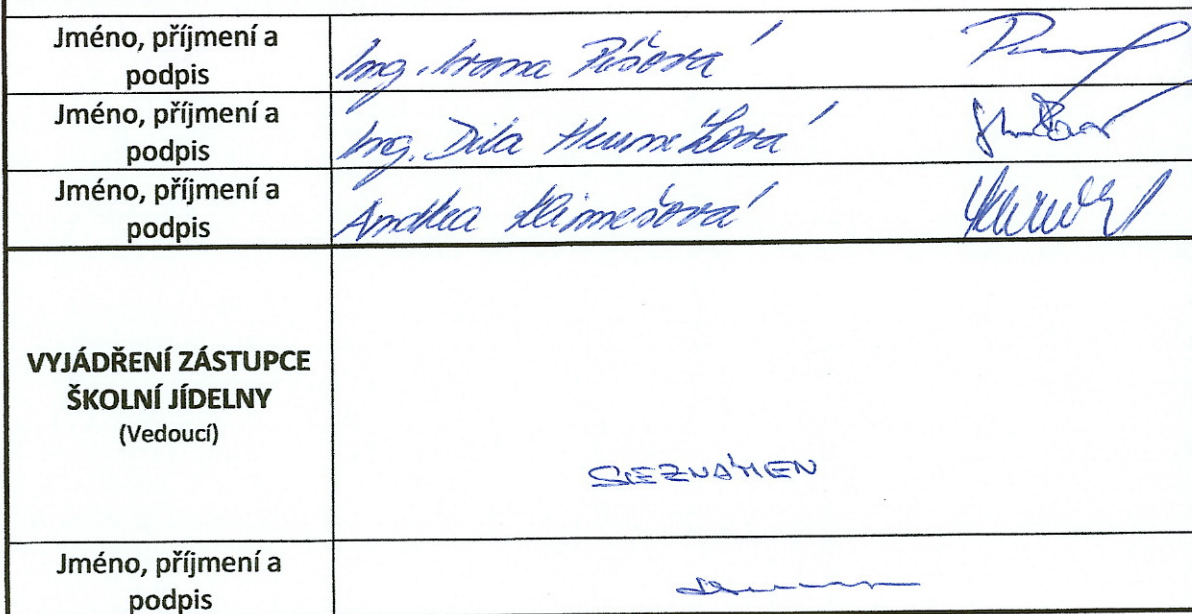 Jméno, příjmení a
podpis
Ing. Ivana Píšová
Jméno, příjmení a
podpis
Ing. Dita
Jméno, příjmení a
podpis
Andrea Klimešová
VYJÁDŘENÍ ZÁSTUPCE
ŠKOLNÍ JÍDELNY
(Vedoucí)
SEZNÁMEN
Jméno, příjmení a
podpis